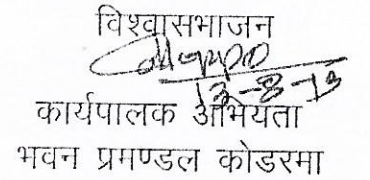 विश्वासभाजन
12-8-13
कार्यपालक अभियंता
भवन प्रमण्डल कोडरमा